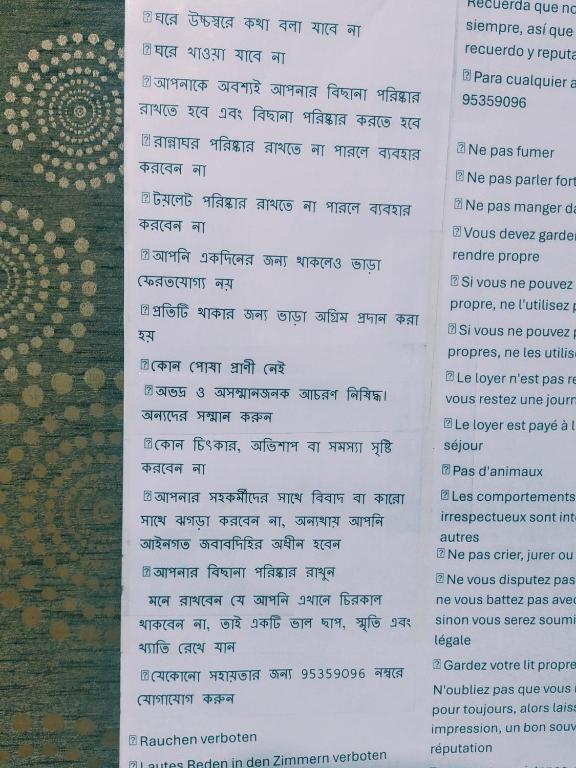 ঘরে উচ্চস্বরে কথা বলা যাবে না
ঘরে খাওয়া যাবে না
আপনাকে অবশ্যই আপনার বিছানা পরিষ্কার
রাখতে হবে এবং বিছানা পরিষ্কার করতে হবে
রান্নাঘর পরিষ্কার রাখতে না পারলে ব্যবহার
করবেন না
টয়লেট পরিষ্কার রাখতে না পারলে ব্যবহার
করবেন না
আপনি একদিনের জন্য থাকলেও ভাড়া
ফেরতযোগ্য নয়
প্রতিটি থাকার জন্য ভাড়া অগ্রিম প্রদান করা
হয়
কোন পোষা প্রাণী নেই
অভদ্র ও অসম্মানজনক আচরণ নিষিদ্ধ।
অন্যদের সম্মান করুন
কোন চিৎকার, অভিশাপ বা সমস্যা সৃষ্টি
করবেন না
আপনার সহকর্মীদের সাথে বিবাদ বা কারো
সাথে ঝগড়া করবেন না, অন্যথায় আপনি
আইনগত জবাবদিহির অধীন হবেন
আপনার বিছানা পরিষ্কার রাখুন
মনে রাখবেন যে আপনি এখানে চিরকাল
থাকবেন না, তাই একটি ভাল ছাপ, স্মৃতি এবং
খ্যাতি রেখে যান
যেকোনো সহায়তার জন্য 95359096 নম্বরে
যোগাযোগ করুন
Rauchen verboten
Lautes Reden in den Zimmern verboten
Recuerda que no
siempre, así que
recuerdo y reputa
Para cualquier a
95359096
Ne pas fumer
Ne pas parler fort
Ne pas manger da
Vous devez garder
rendre propre
Si vous ne pouvez
propre, ne l'utilisez p
Si vous ne pouvez p
propres, ne les utilise
Le loyer n'est pas re
vous restez une journ
Le loyer est payé à l
séjour
Pas d'animaux
Les comportements
irrespectueux sont int
autres
Ne pas crier, jurer ou
Ne vous disputez pas
ne vous battez pas avec
sinon vous serez soumi
légale
Gardez votre lit propre
N'oubliez pas que vous
pour toujours, alors laiss
impression, un bon souv
réputation